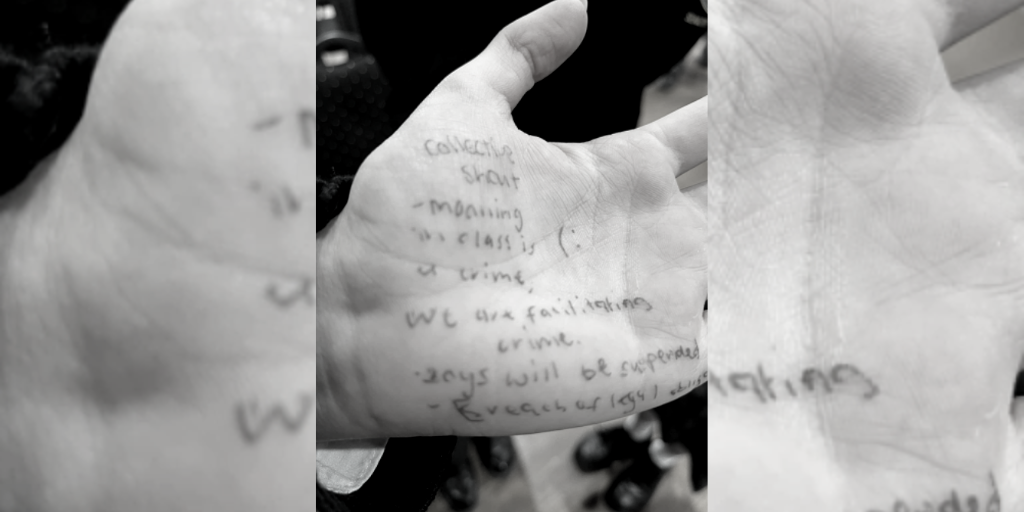 collective
shout
- moaning
in class is (:
a crime.
we are facilitating
crime.
- Boys will be suspended
- Breach of legal